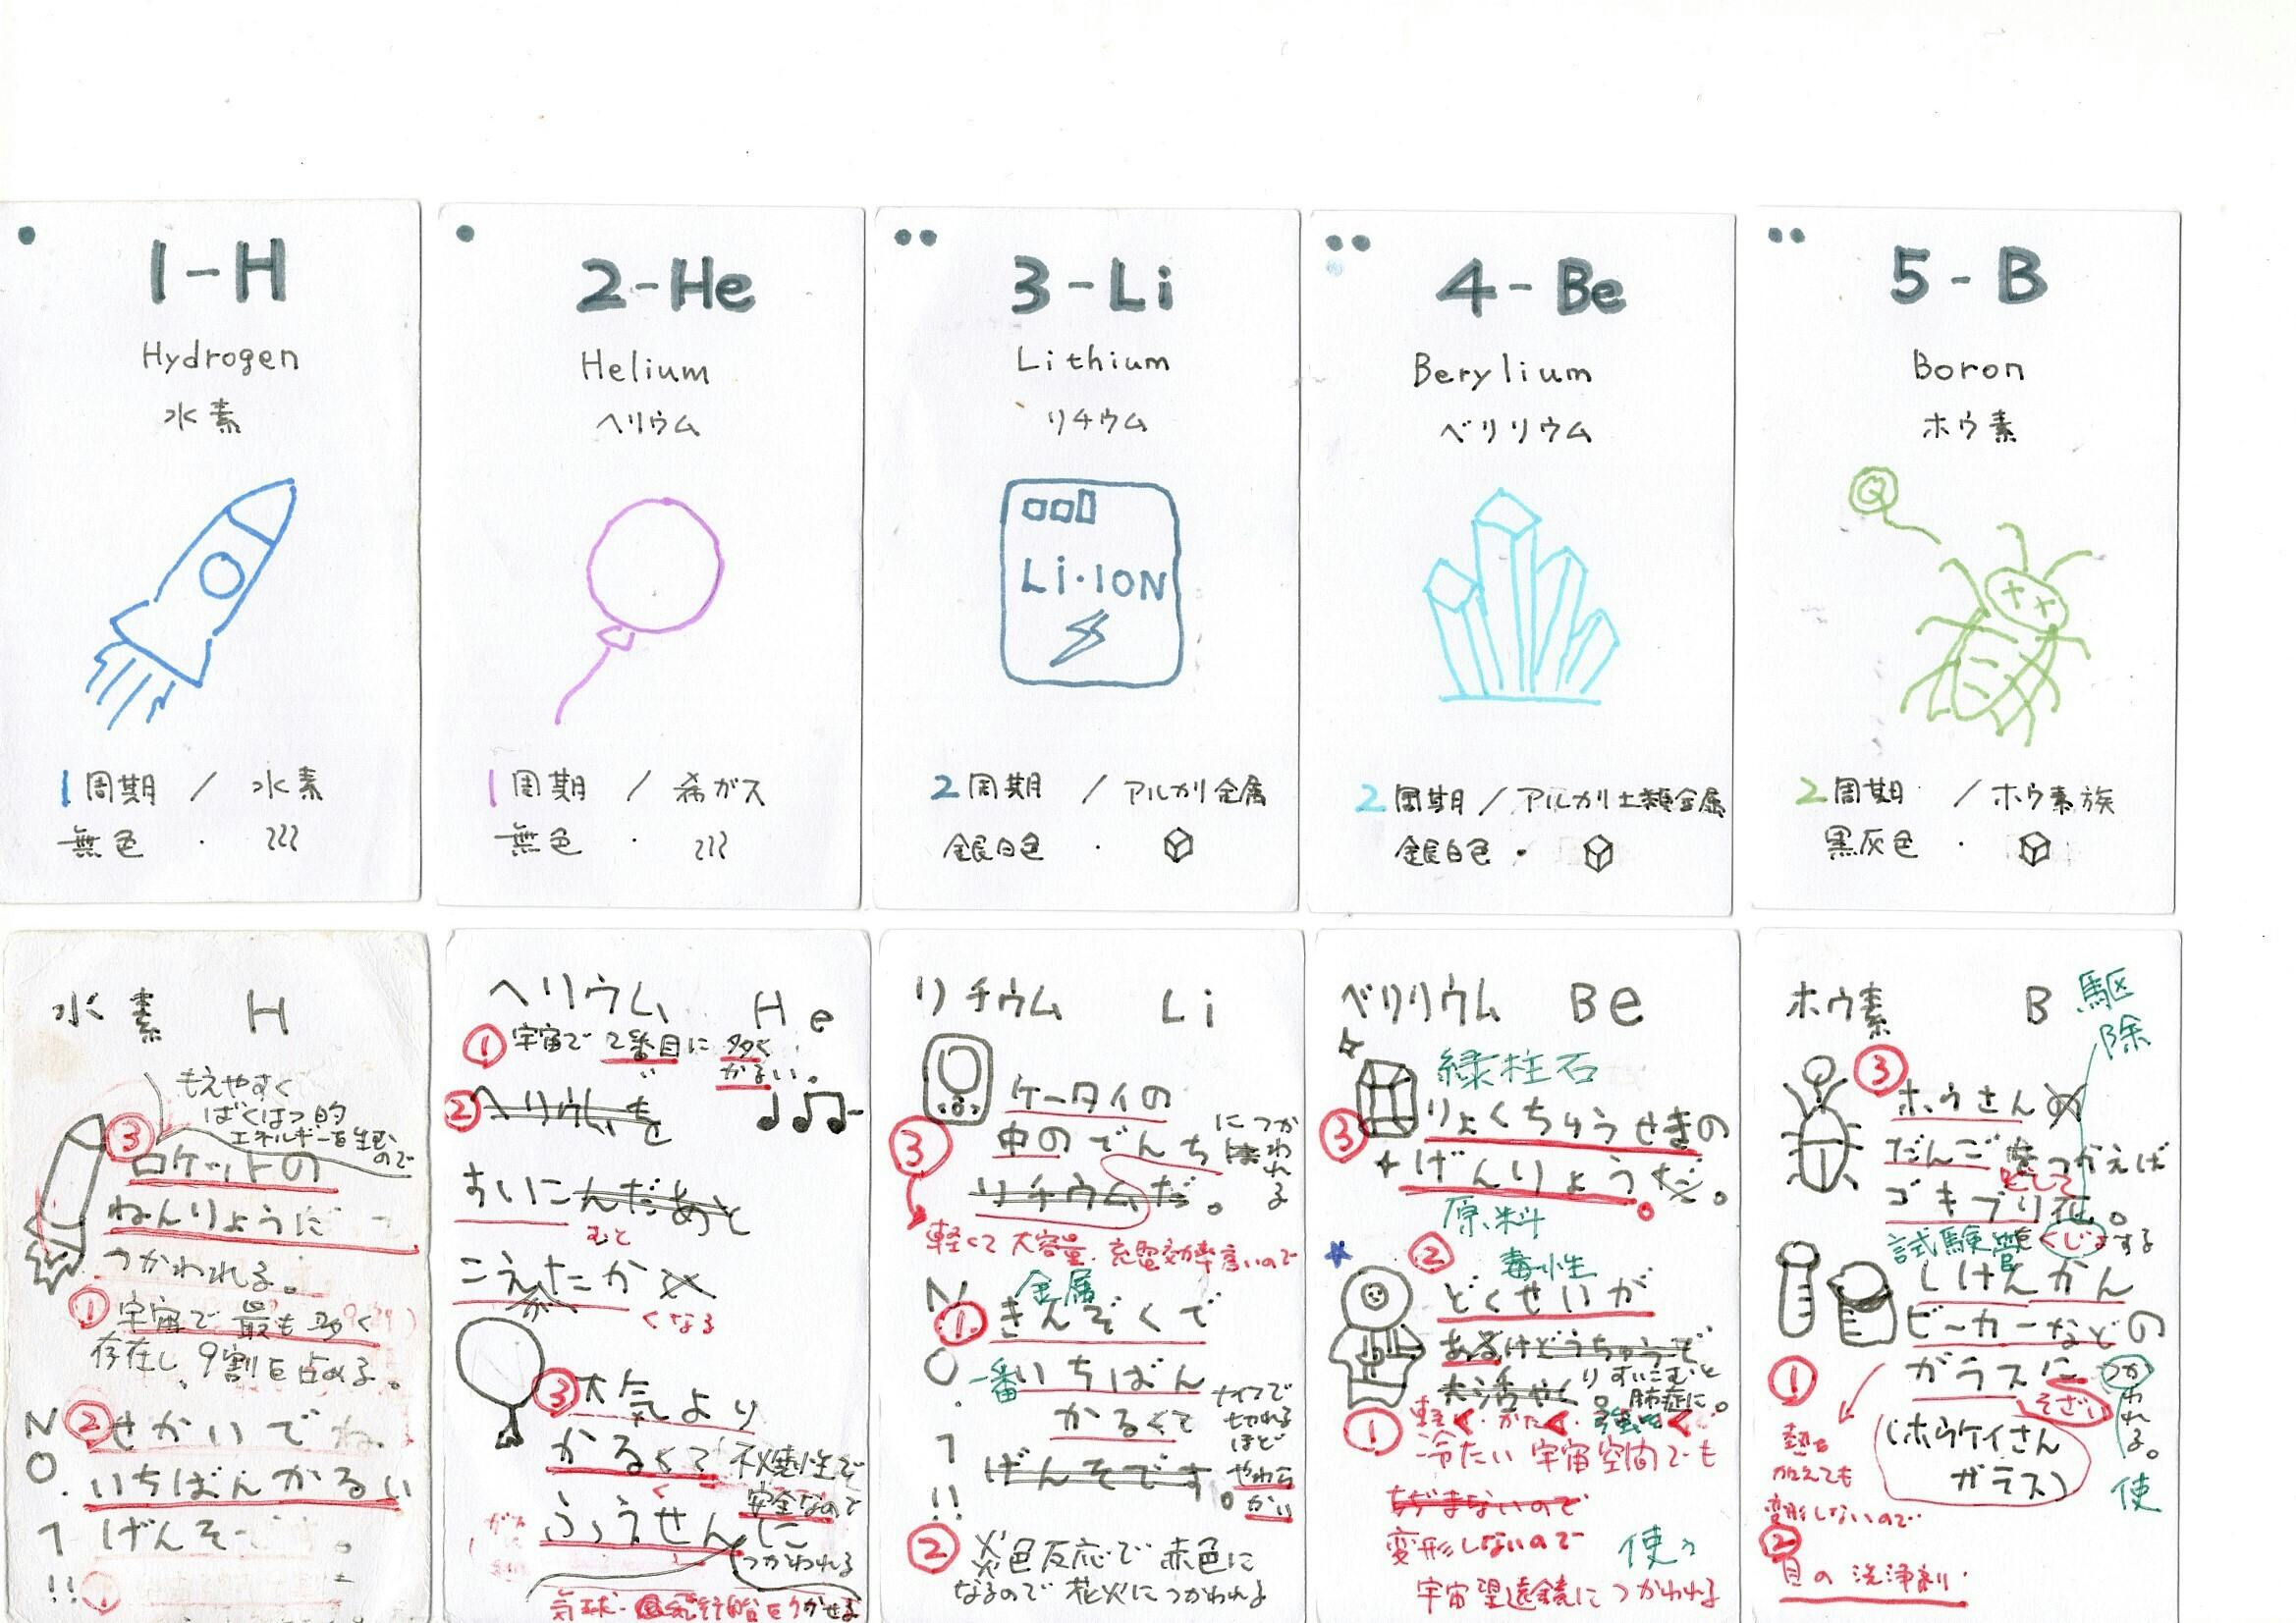 1-H
Hydrogen
水素
1周期 / 水素
無色 ・
2-He
Helium
ヘリウム
1周期 / 希ガス
無色 ・
3-Li
Lithium
リチウム
Li・ION
2周期 / アルカリ金属
銀白色 ・
4-Be
Berylium
ベリリウム
2周期 / アルカリ土類金属
銀白色 ・
5-B
Boron
ホウ素
Q
2周期 / ホウ素族
黒灰色 ・
水素 H
もえやすく
ばくはつ的
エネルギーを生むので
③
ロケットの
ねんりょうに
つかわれる。
① 宇宙で最も多く
存在し、9割を占める。
NO.1!!
② せかいで
いちばんかるい
げんそ
ヘリウム He
① 宇宙で2番目に多く
かるい。
② ヘリウムを
すいこんだあと
むと
こえたか
が
くなる
③ 大気より
かるくて 不燃性で
安全なので
ふうせんに
つかわれる
リチウム Li
ケータイの
③ 中のでんち
につかわれる
リチウムだ。
軽くて大容量、充電効率高いので
NO.1!!
金属
① きんぞくで
一番 いちばん
かるくて
げんそです。
ナイフで
切れる
ほど
やわら
かい
② 炎色反応で赤色に
なるので花火につかわれる
ベリリウム Be
緑柱石
③ りょくちゅうせきの
げんりょうだ。
原料
② 毒性
どくせいが
あるけどうちゅうで
大活やく
すいこむと
肺症に。
① 軽く・かたく・強く
冷たい宇宙空間でも
ちぢまないので
変形しないので
使
宇宙望遠鏡につかわれる
ホウ素 B
駆除
③ ホウさん
だんごをつかえば
として
ゴキブリ
くじょする
試験管
しけんかん
ビーカーなどの
ガラスに
そざい
つかわれる。
使
(ホウケイさん
ガラス)
① 熱を
加えても
変形しないので
②
目の洗浄剤